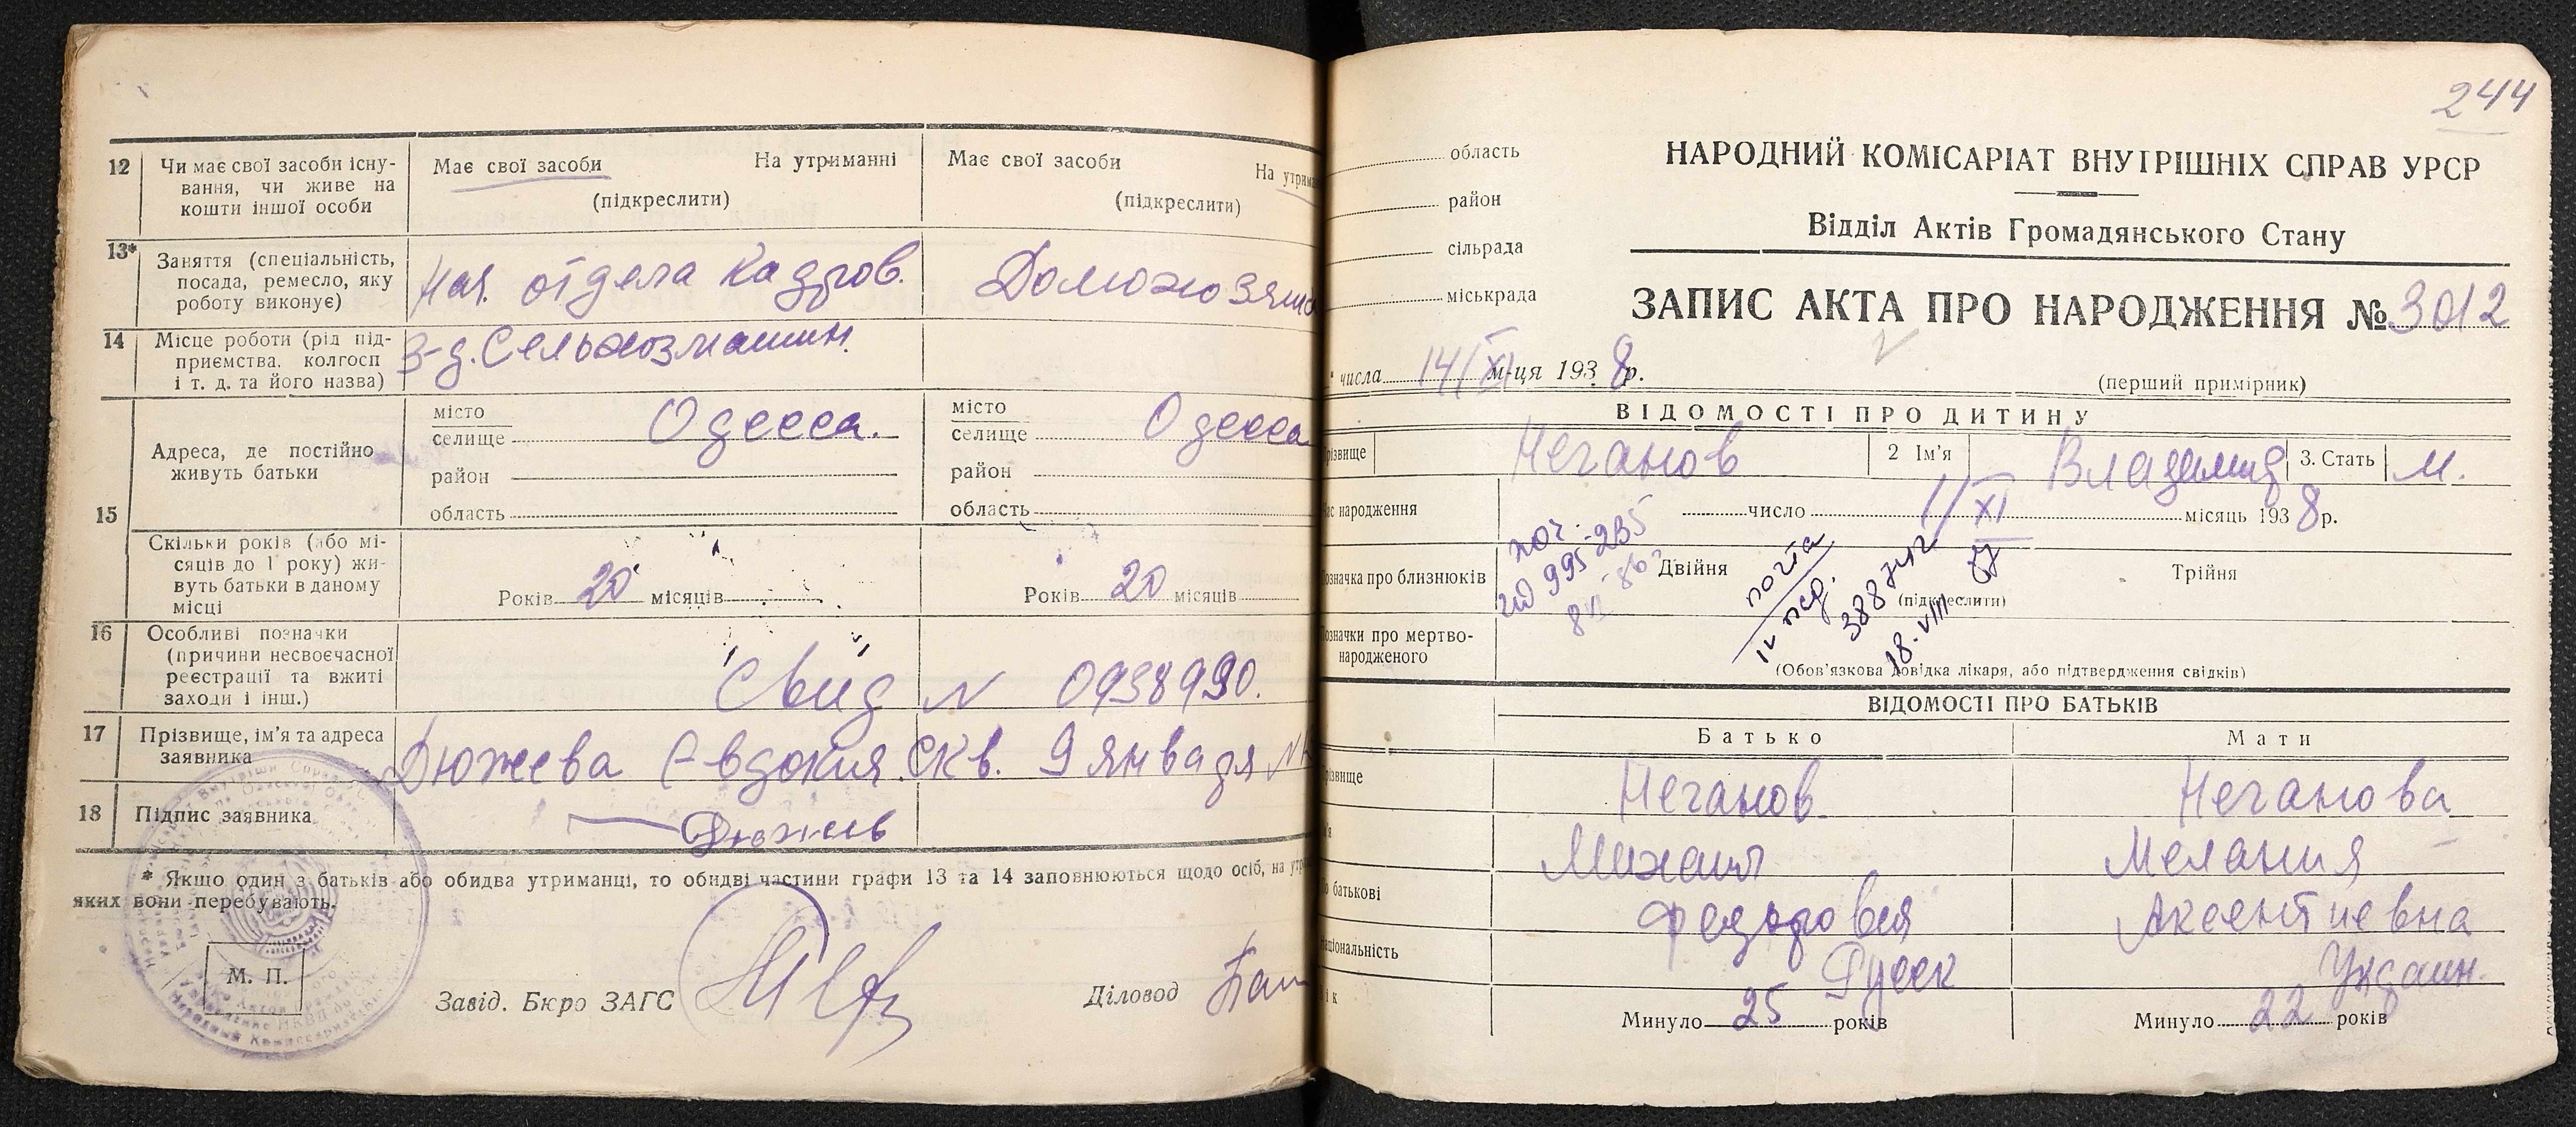 12
Чи має свої засоби існу-
вання, чи живе на
кошти іншої особи
Має свої засоби На утриманні
(підкреслити)
Має свої засоби На утрима
(підкреслити)
13*
Заняття (спеціальність,
посада, ремесло, яку
роботу виконує)
Нач. отдела кадров.
Домохозяйка
14
Місце роботи (рід під-
приємства, колгосп
і т. д. та його назва)
З-д. Сельхозмашин.
15
Адреса, де постійно
живуть батьки
місто
селище Одесса.
район
область
місто
селище Одесса
район
область
Скільки років (або мі-
сяців до 1 року) жи-
вуть батьки в даному
місці
Років 20 місяців
Років 20 місяців
16
Особливі позначки
(причини несвоєчасної
реєстрації та вжиті
заходи і інш.)
Свид N 0938990.
17
Прізвище, ім'я та адреса
заявника
Дюжева Евдокия. Скв. 9 января №
18
Підпис заявника
Дюжев
* Якщо один з батьків або обидва утриманці, то обидві частини графи 13 та 14 заповнюються щодо осіб, на утри
яких вони перебувають.
М. П.
Завід. Бюро ЗАГС
Діловод
244
область
район
сільрада
міськрада
НАРОДНИЙ КОМІСАРІАТ ВНУТРІШНІХ СПРАВ УРСР
Відділ Актів Громадянського Стану
ЗАПИС АКТА ПРО НАРОДЖЕННЯ № 3012
числа 14/XI м-ця 1938 р.
(перший примірник)
ВІДОМОСТІ ПРО ДИТИНУ
різвище Неганов 2 Ім'я Владимир 3. Стать м.
ас народження число 1/XI місяць 1938 р.
означка про близнюків Двійня Трійня
(підкреслити)
пот.
995-235
почта
388742
18-VIII
означки про мертво-
народженого
(Обов'язкова довідка лікаря, або підтвердження свідків)
ВІДОМОСТІ ПРО БАТЬКІВ
Батько Мати
різвище Неганов Неганова
м'я Михаил Мелания
о батькові Федорович Аксентиевна
аціональність Русск Украин.
ік Минуло 25 років Минуло 22 років